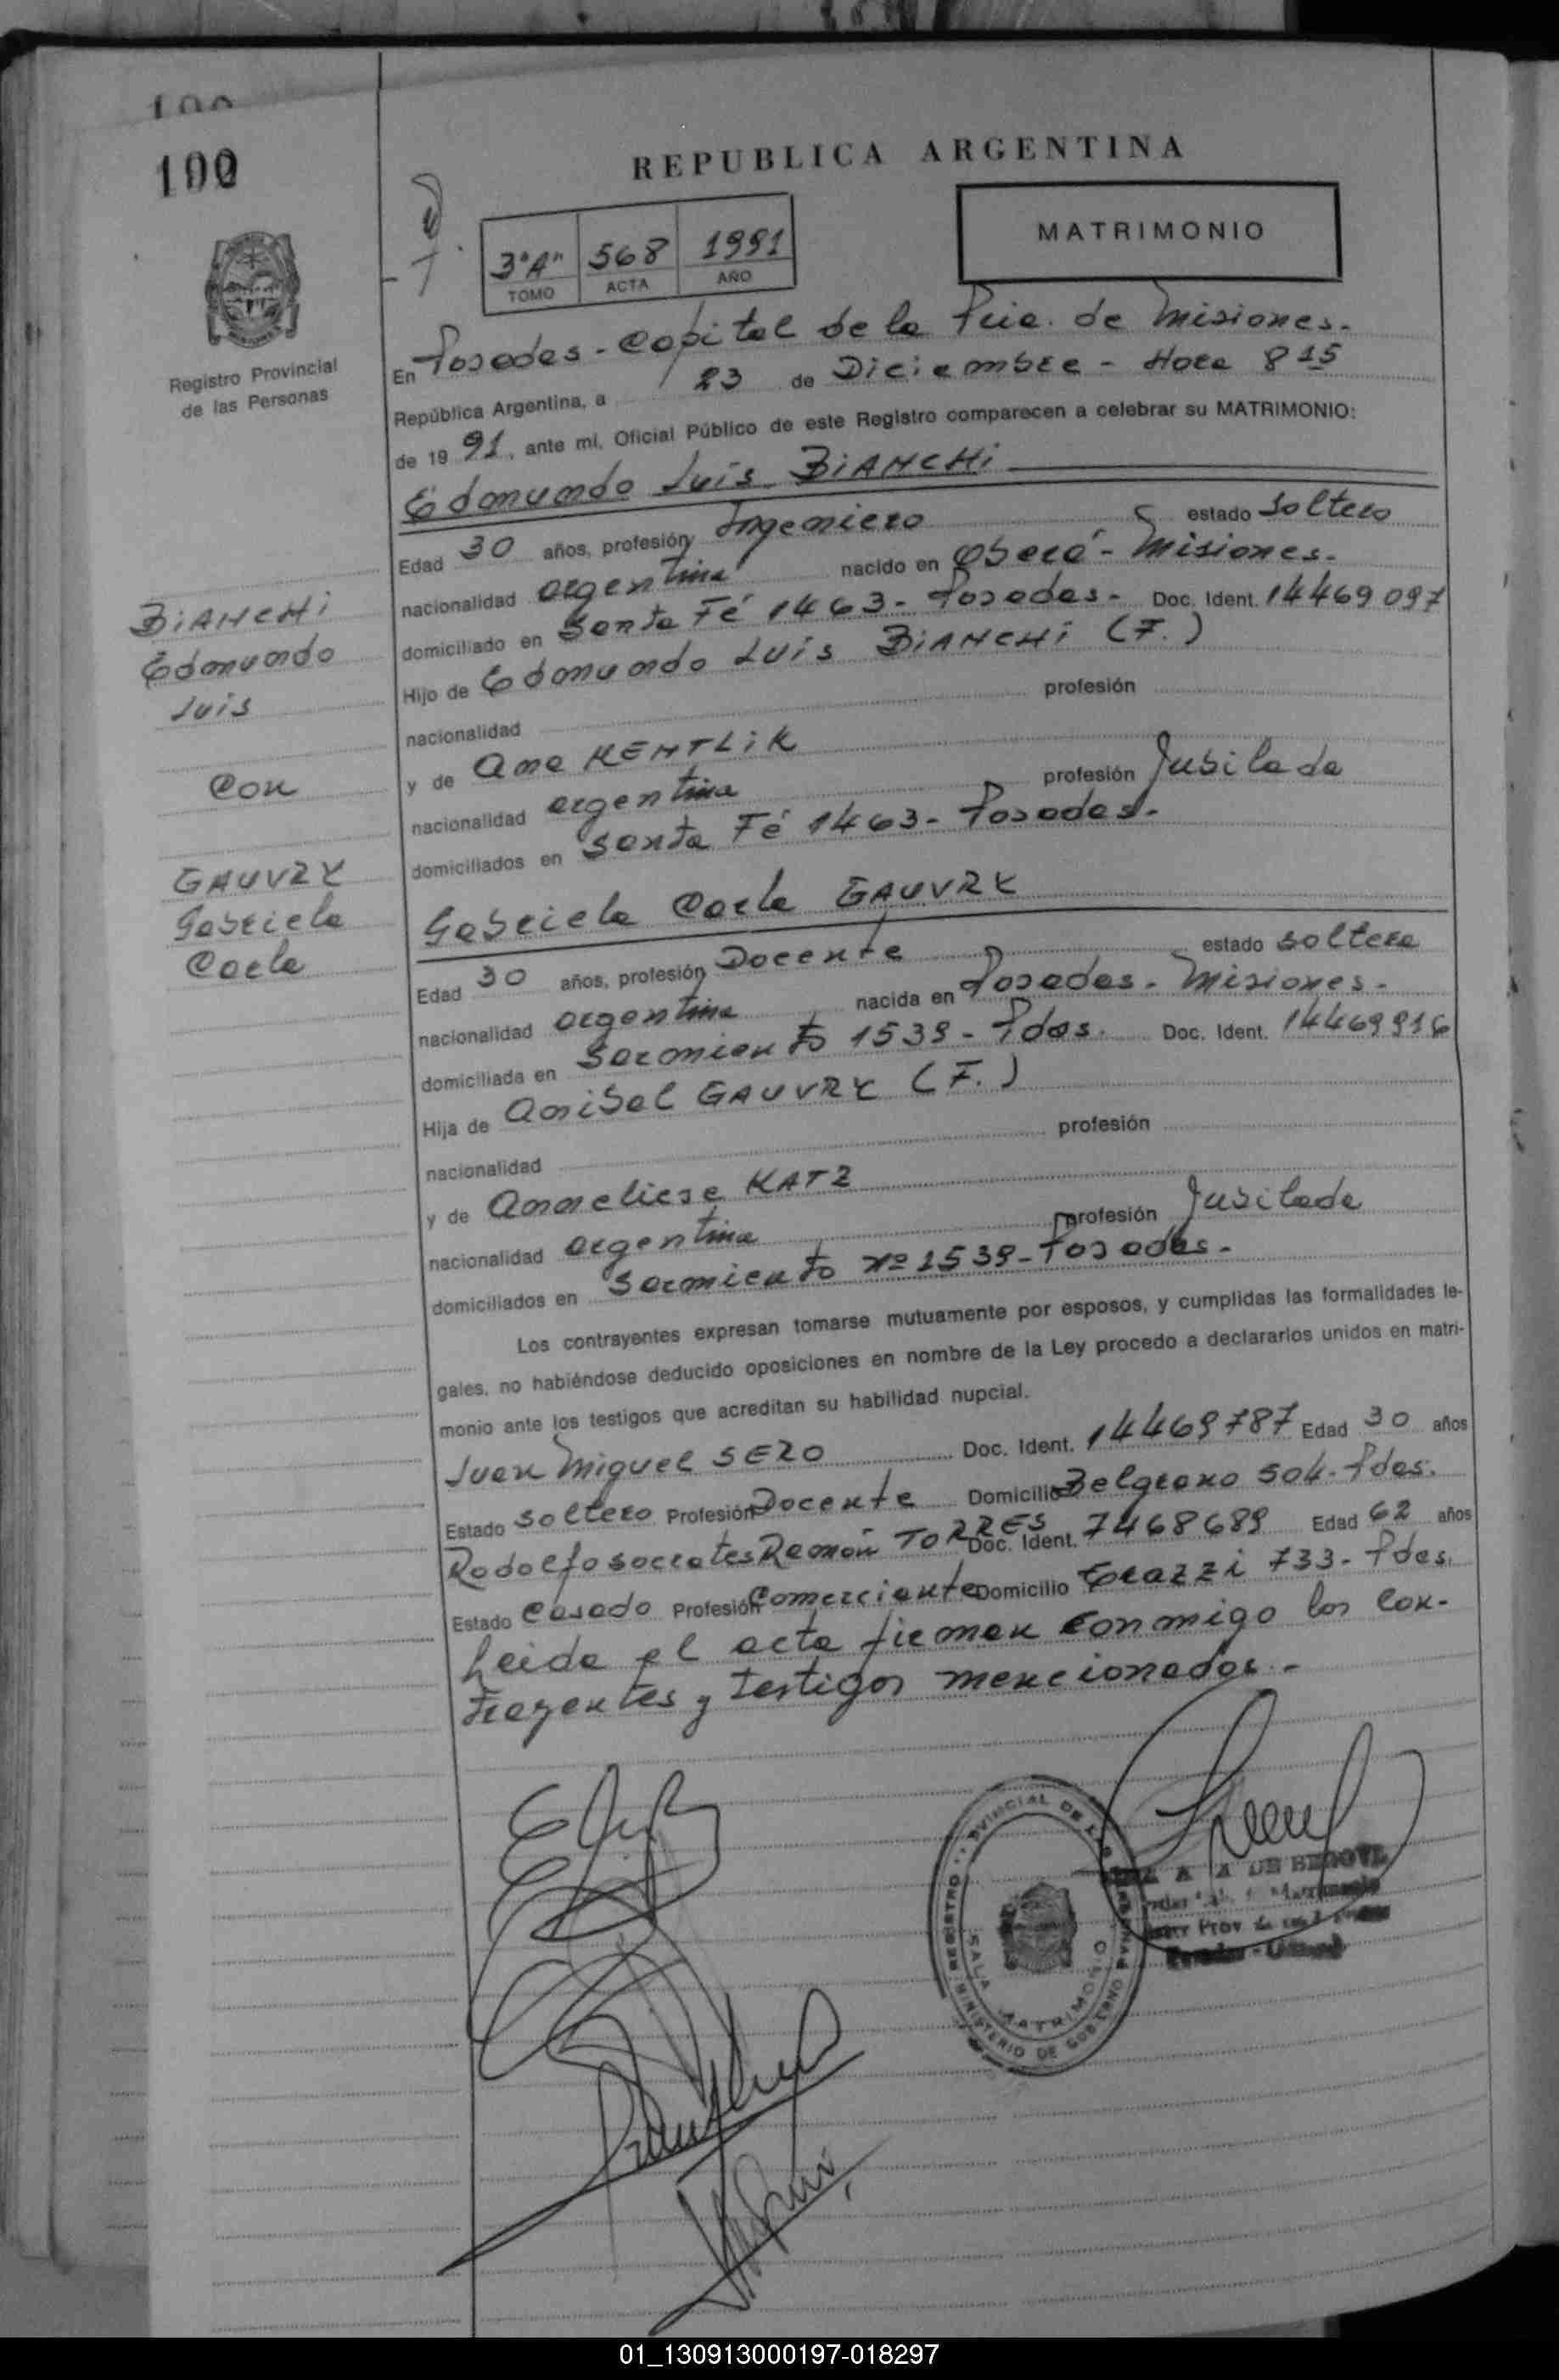 100
REPUBLICA ARGENTINA
MATRIMONIO
3ª"A" 568 1991
TOMO ACTA AÑO
Registro Provincial
de las Personas
En Posadas - Capital de la Pcia. de Misiones.-
República Argentina, a 23 de Diciembre - Hora 8 15
de 19 91, ante mí, Oficial Público de este Registro comparecen a celebrar su MATRIMONIO:
Edmundo Luis BIANCHI
Edad 30 años, profesión Ingeniero estado Soltero
nacionalidad argentina nacido en Oberá - Misiones.-
domiciliado en Santa Fé 1463 - Posadas - Doc. Ident. 14469097
Hijo de Edmundo Luis BIANCHI (F.)
nacionalidad profesión
y de Ana KENTLIK
nacionalidad argentina profesión Jubilada
domiciliados en Santa Fé 1463 - Posadas.-
BIANCHI
Edmundo
Luis
Con
GAUVRY
Gabriela
Carla
Gabriela Carla GAUVRY
Edad 30 años, profesión Docente estado soltera
nacionalidad argentina nacida en Posadas - Misiones.-
domiciliada en Sarmiento 1539 - Pdas. Doc. Ident. 14469916
Hija de Anibal GAUVRY (F.)
nacionalidad profesión
y de Anneliese KATZ
nacionalidad argentina profesión Jubilada
domiciliados en Sarmiento Nº 1539 - Posadas.-
Los contrayentes expresan tomarse mutuamente por esposos, y cumplidas las formalidades le-
gales, no habiéndose deducido oposiciones en nombre de la Ley procedo a declararlos unidos en matri-
monio ante los testigos que acreditan su habilidad nupcial.
Juan Miguel SERO Doc. Ident. 14469787 Edad 30 años
Estado soltero Profesión Docente Domicilio Belgrano 504 - Pdas.
Rodolfo Socrates Ramón TORRES Doc. Ident. 7468689 Edad 62 años
Estado Casado Profesión Comerciante Domicilio 733 - Pdas.
Leida el acta firman conmigo los con-
trayentes y testigos mencionados.-
REGISTRO PROVINCIAL DE LAS PERSONAS
SALA MATRIMONIO
MINISTERIO DE GOBIERNO
DE BEGOVE
01_130913000197-018297